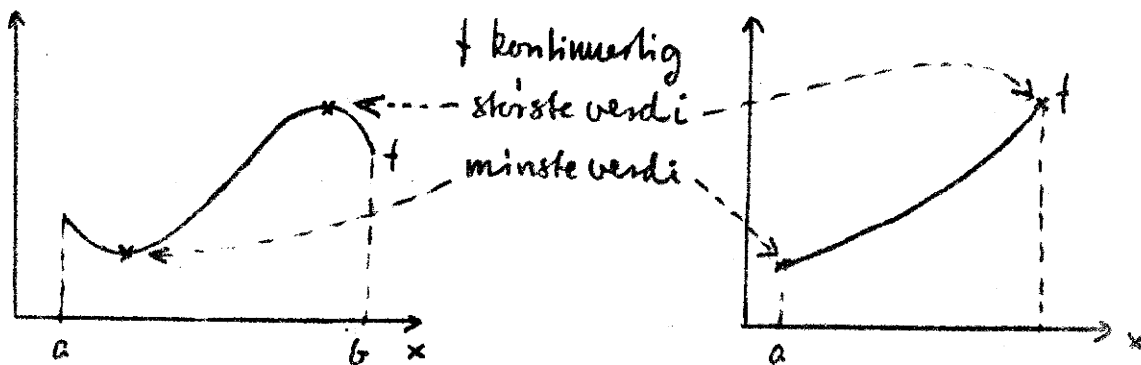 f kontinuerlig
største verdi
minste verdi
f
f
a
b
x
a
x